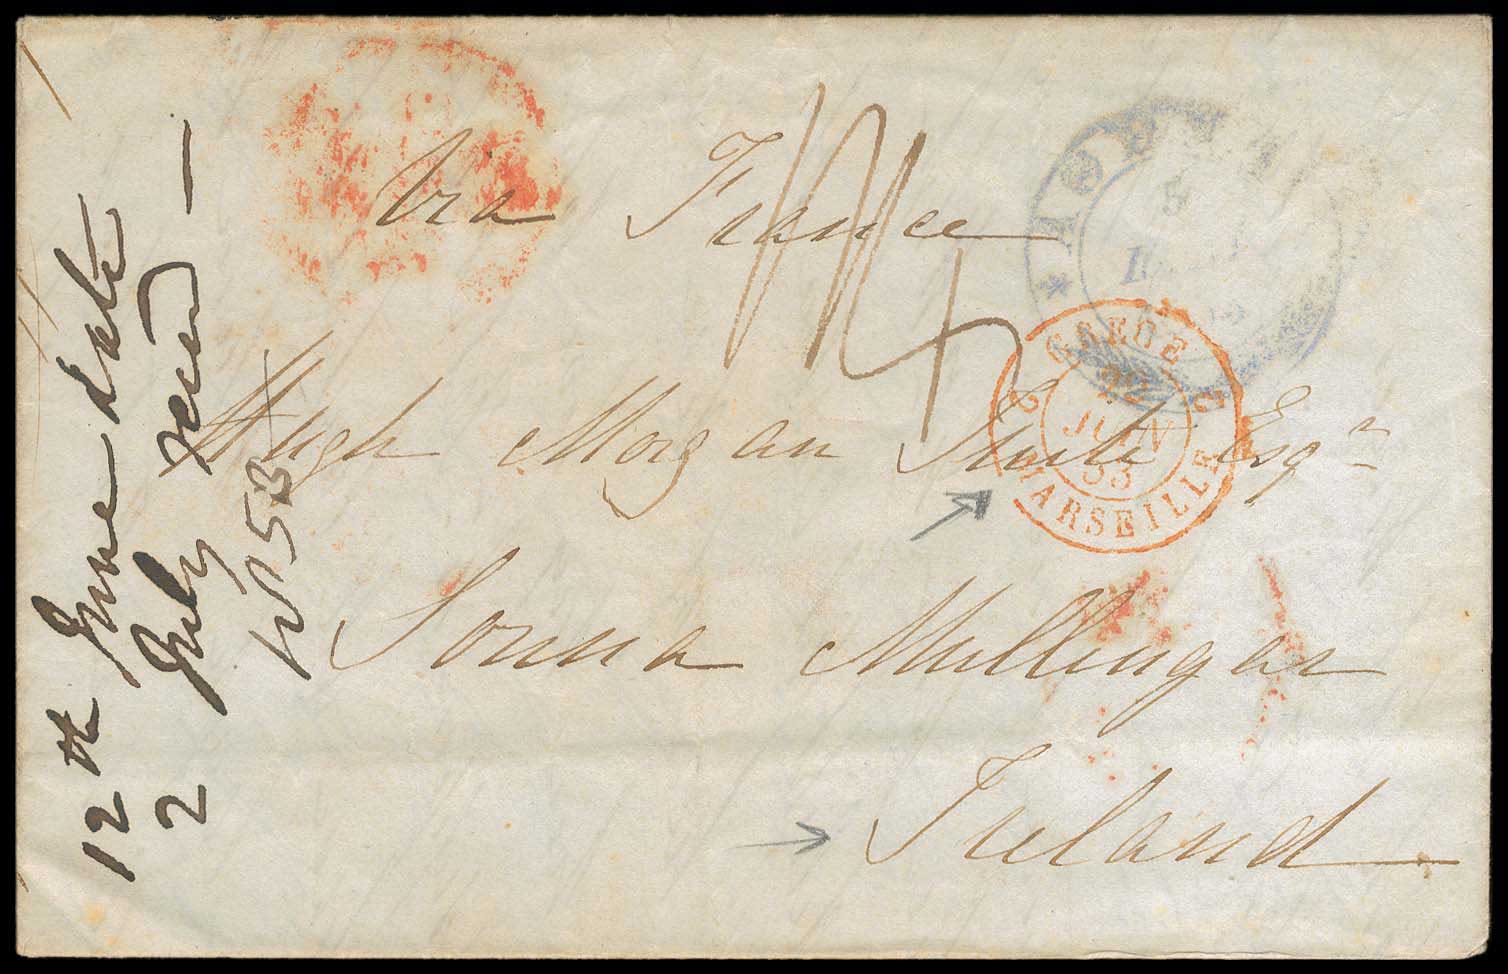 Via France
Hugh Morgan Tuite Esqr
Sonna Mullingar
Ireland
12th June date
2 July recd —
1853
GRECE
22
JUIN
53
MARSEILLE
2 2
5